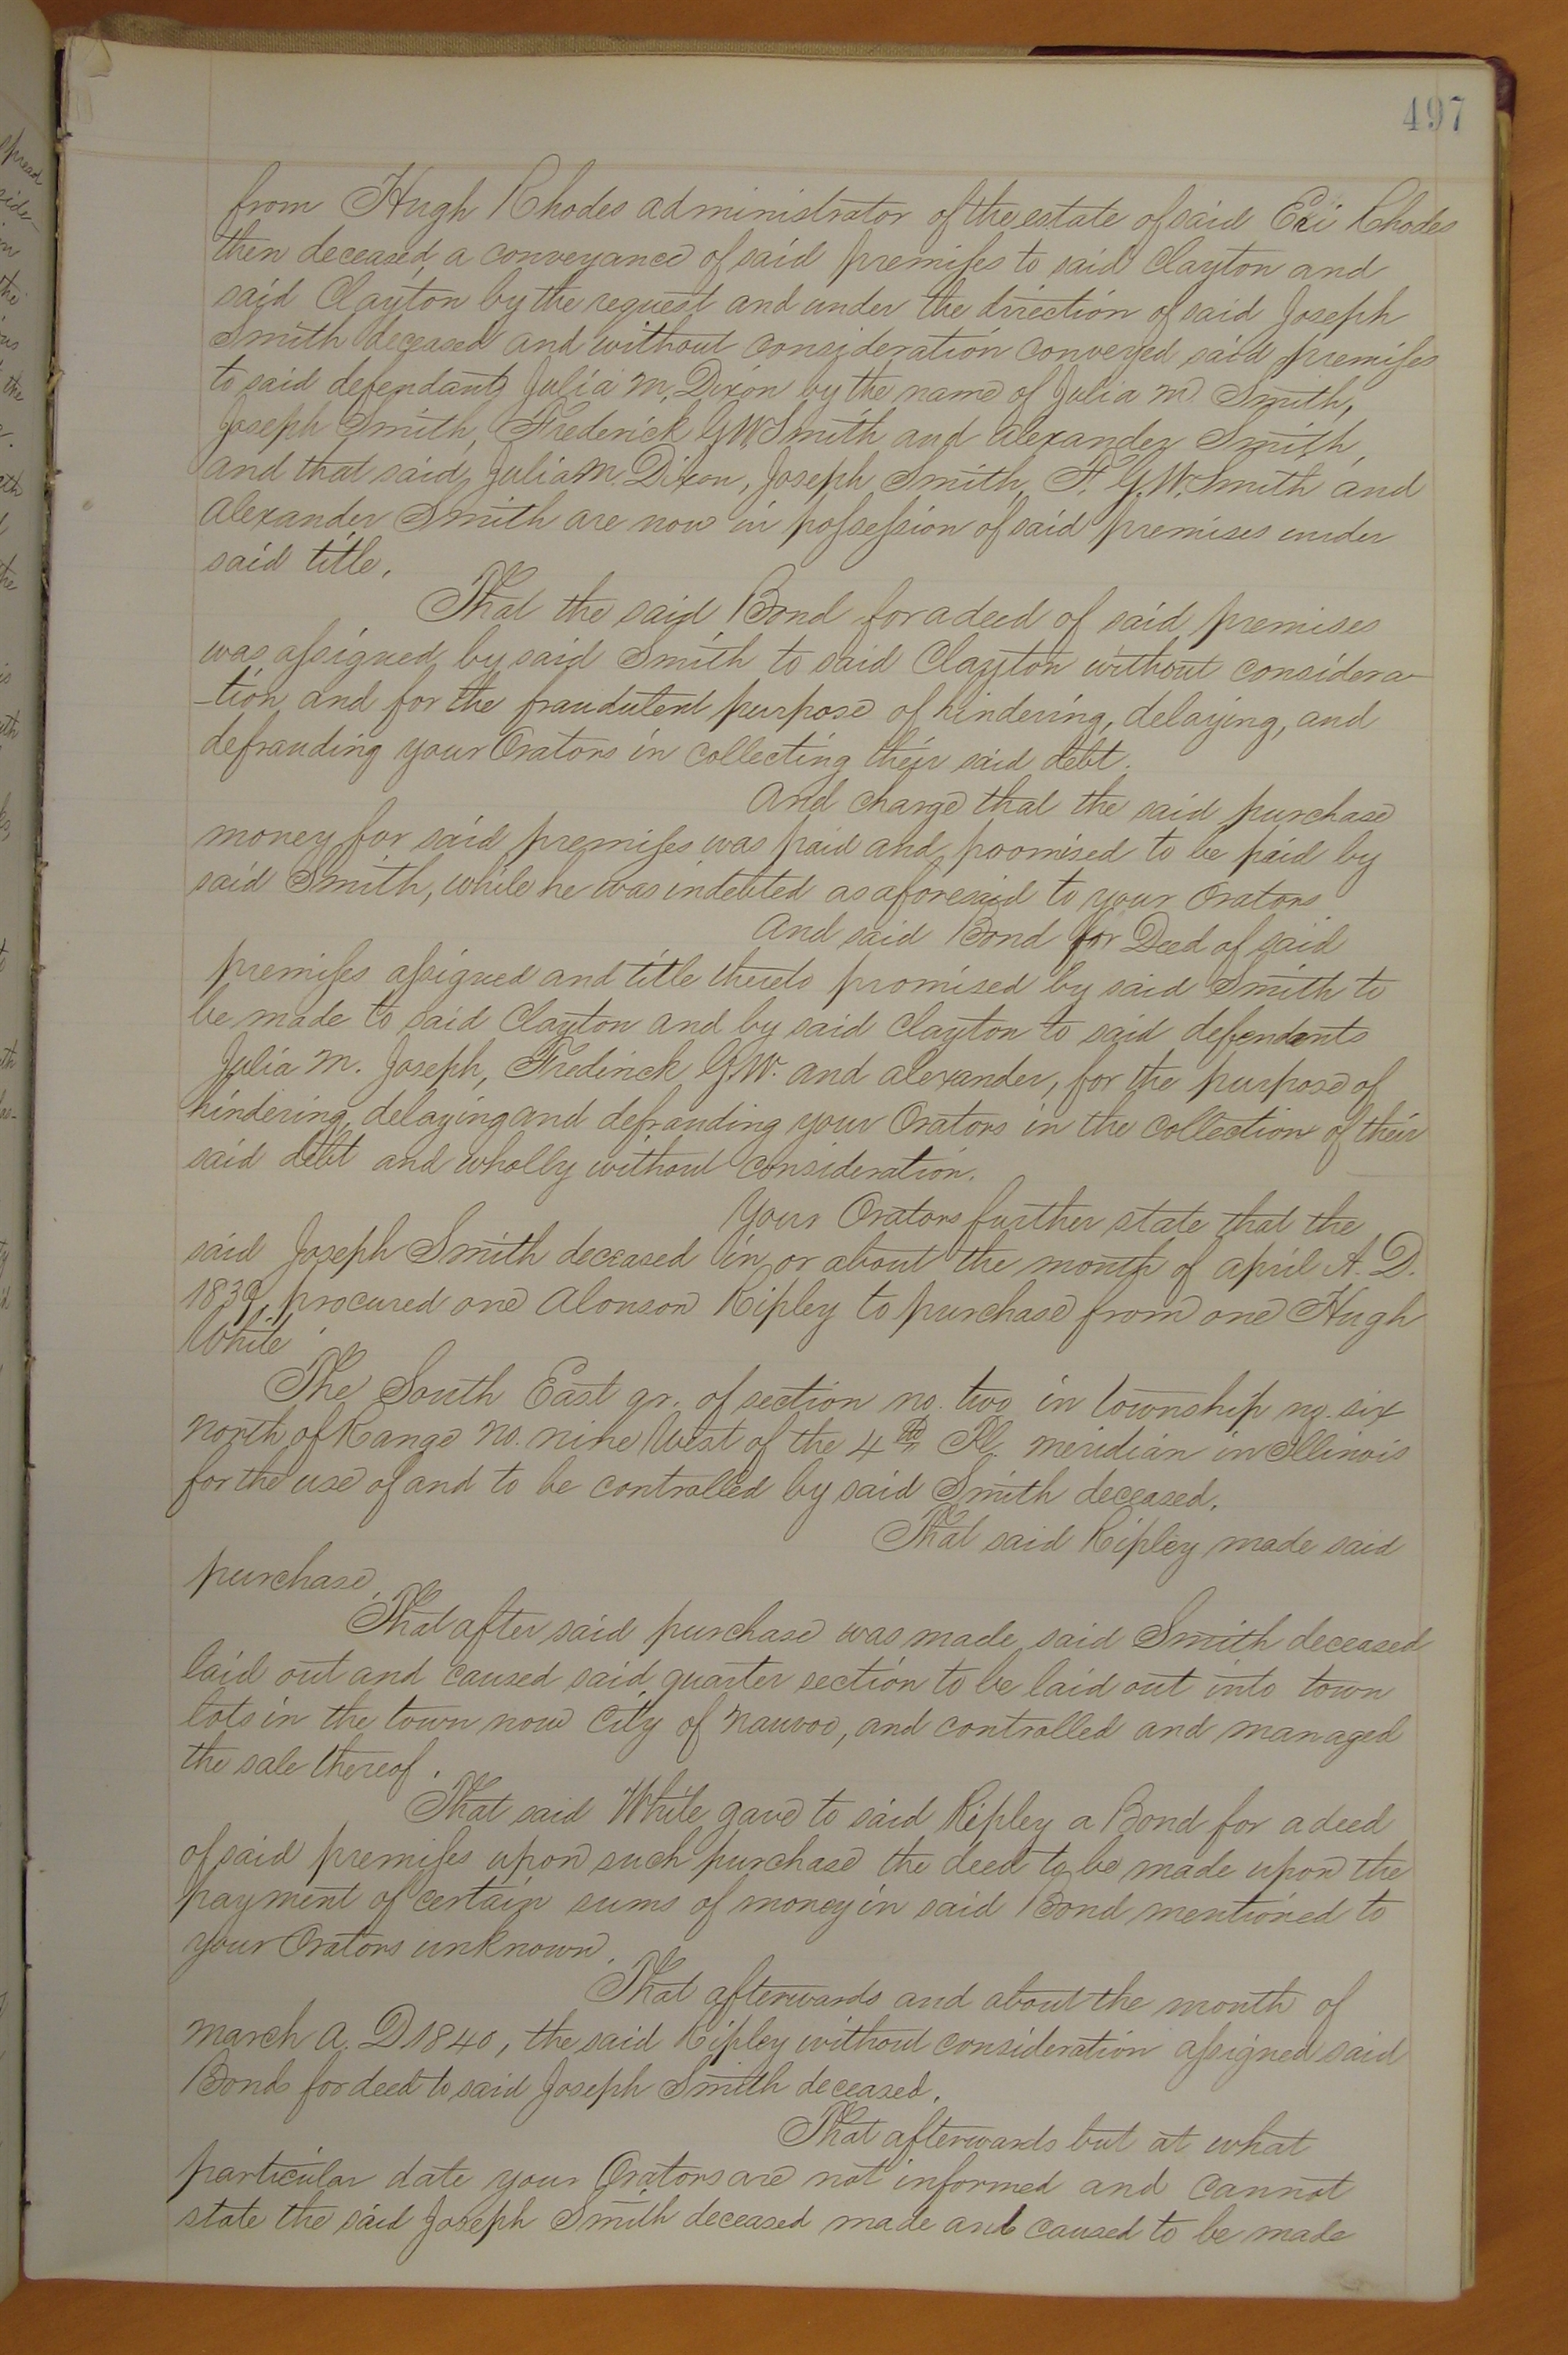 497
from Hugh Rhodes administrator of the estate of said Eri Rhodes
then deceased, a conveyance of said premises to said Clayton and
said Clayton by the request and under the direction of said Joseph
Smith deceased and without consideration conveyed said premises
to said defendants Julia M. Dixon by the name of Julia M. Smith,
Joseph Smith, Frederick G W Smith and Alexander Smith,
and that said Julia M. Dixon, Joseph Smith, F. G. W. Smith and
Alexander Smith are now in possession of said premises under
said title.
That the said Bond for a deed of said premises
was assigned by said Smith to said Clayton without considera-
-tion and for the fraudulent purpose of hindering, delaying, and
defrauding your Orators in collecting their said debt.
And charge that the said purchase
money for said premises was paid and poomised to be paid by
said Smith, while he was indebted as aforesaid to your Orators
And said Bond for Deed of said
premises assigned and title thereto promised by said Smith to
be made to said Clayton and by said Clayton to said defendants
Julia M. Joseph, Frederick G.W. and Alexander, for the purpose of
hindering, delaying and defrauding your Orators in the collection of their
said debt and wholly without consideration.
Your Orators further state that the
said Joseph Smith deceased in or about the month of April A. D.
1839, procured one Alonson Ripley to purchase from one Hugh
White
The South East qr. of section no. two in township no. six
North of Range No. nine West of the 4th Pl. meridian in Illinois
for the use of and to be controlled by said Smith deceased.
That said Ripley made said
purchase.
That after said purchase was made, said Smith deceased
laid out and caused said quarter section to be laid out into town
lots in the town now City of Nauvoo, and controlled and managed
the sale thereof.
That said White gave to said Ripley a Bond for a deed
of said premises upon such purchase the deed to be made upon the
payment of certain sums of money in said Bond mentioned to
your Orators unknown.
That afterwards and about the month of
March A. D 1840, the said Ripley without consideration assigned said
Bond for deed to said Joseph Smith deceased.
That afterwards but at what
particular date your Orators are not informed and cannot
state the said Joseph Smith deceased made and caused to be made